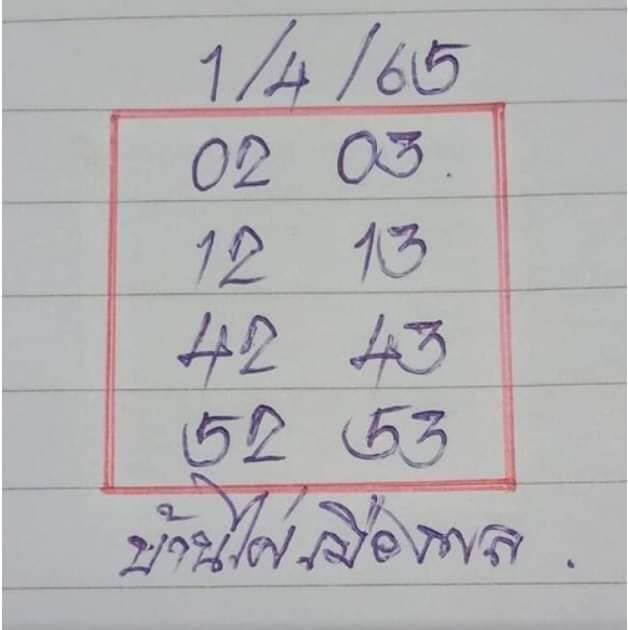 1/4/65
02 03.
12 13
42 43
52 53
บ้านไผ่เมืองพล.